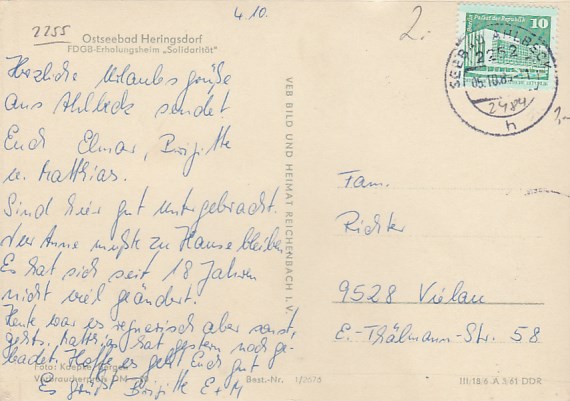 2255
4.10.
2.
Ostseebad Heringsdorf
FDGB-Erholungsheim „Solidarität"
Herzliche Urlaubsgrüße
aus Ahlbeck sendet
Euch Elmar, Brigitte
u. Matthias.
Sind hier gut untergebracht.
Anne mußte zu Hause bleiben
Es hat sich seit 18 Jahren
nicht viel geändert.
Heute war es regnerisch aber sonst
hat gestern noch ge-
badet. Hoffe es geht Euch gut
Es grüßt Brigitte E + M
Foto:
Verbraucherpreis
Best.-Nr. 1/2576
VEB BILD UND HEIMAT REICHENBACH I. V.
Palast der Republik 10
DDR
SEEBAD AHLBECK
2252
05.10.
2484
h
1,-
Fam.
Richter
9528 Vielau
E.-Thälmann-Str. 58
III/18/6 A 3/61 DDR